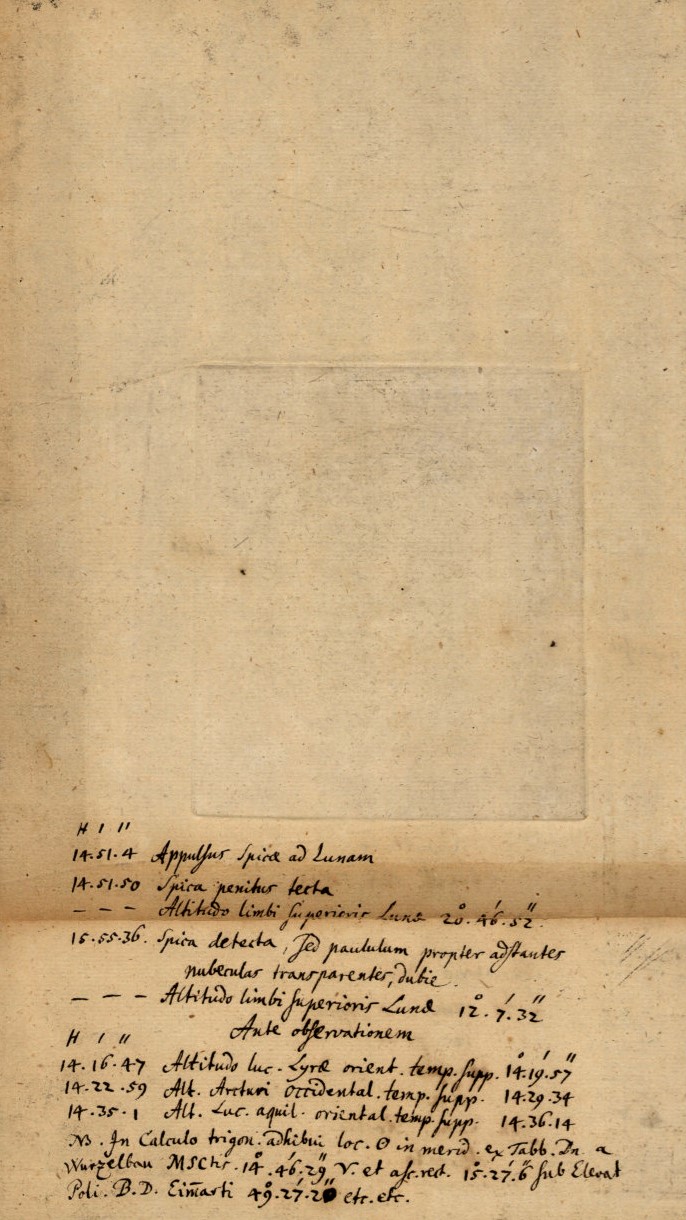 H ′ ″
14.51.4 Appulsus Spicæ ad Lunam
14.51.50 Spica penitus tecta
– – – Altitudo limbi superioris Lunæ 20°.46′.52″.
15.55.36. Spica detecta, sed paululum propter adstantes
nubeculas transparentes, dubie.
– – – Altitudo limbi superioris Lunæ 12°.7′.32″
Ante observationem
H ′ ″
14.16.47 Altitudo luc. Lyræ orient. temp. supp. 14°.19′.57″
14.22.59 Alt. Arcturi Occidental. temp. supp. 14.29.34
14.35.1 Alt. Luc. aquil. oriental. temp. supp. 14.36.14
NB. In Calculo trigon. adhibui loc. ☉ in merid. ex Tabb. Dn. a
Wurzelbau MSCtis. 14°.46′.29″ ♈. et asc. rect. 15°.27′.6″ sub Elevat
Poli. B.D. Eim̄arti 49°.27′. etc. etc.